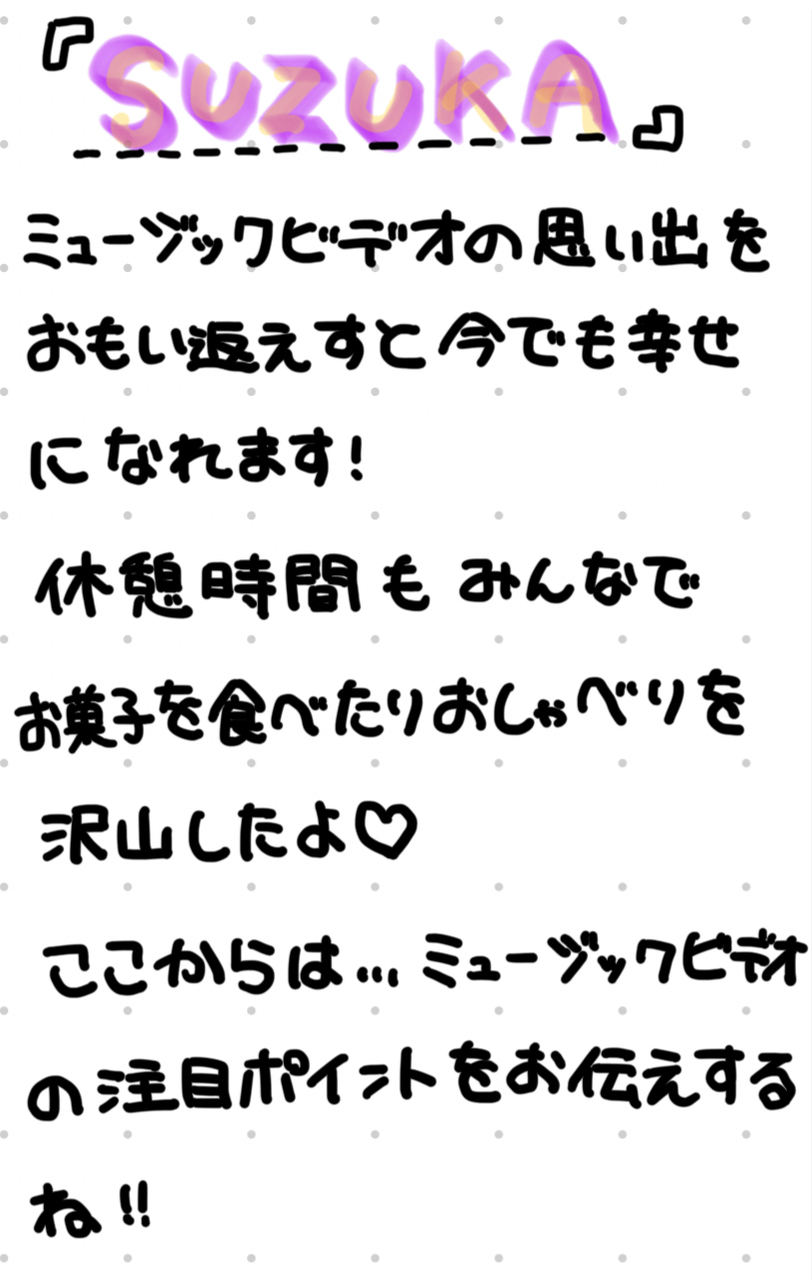 『SUZUKA』
ミュージックビデオの思い出を
おもい返えすと今でも幸せ
になれます!
休憩時間もみんなで
お菓子を食べたりおしゃべりを
沢山したよ♡
ここからは…ミュージックビデオ
の注目ポイントをお伝えする
ね!!